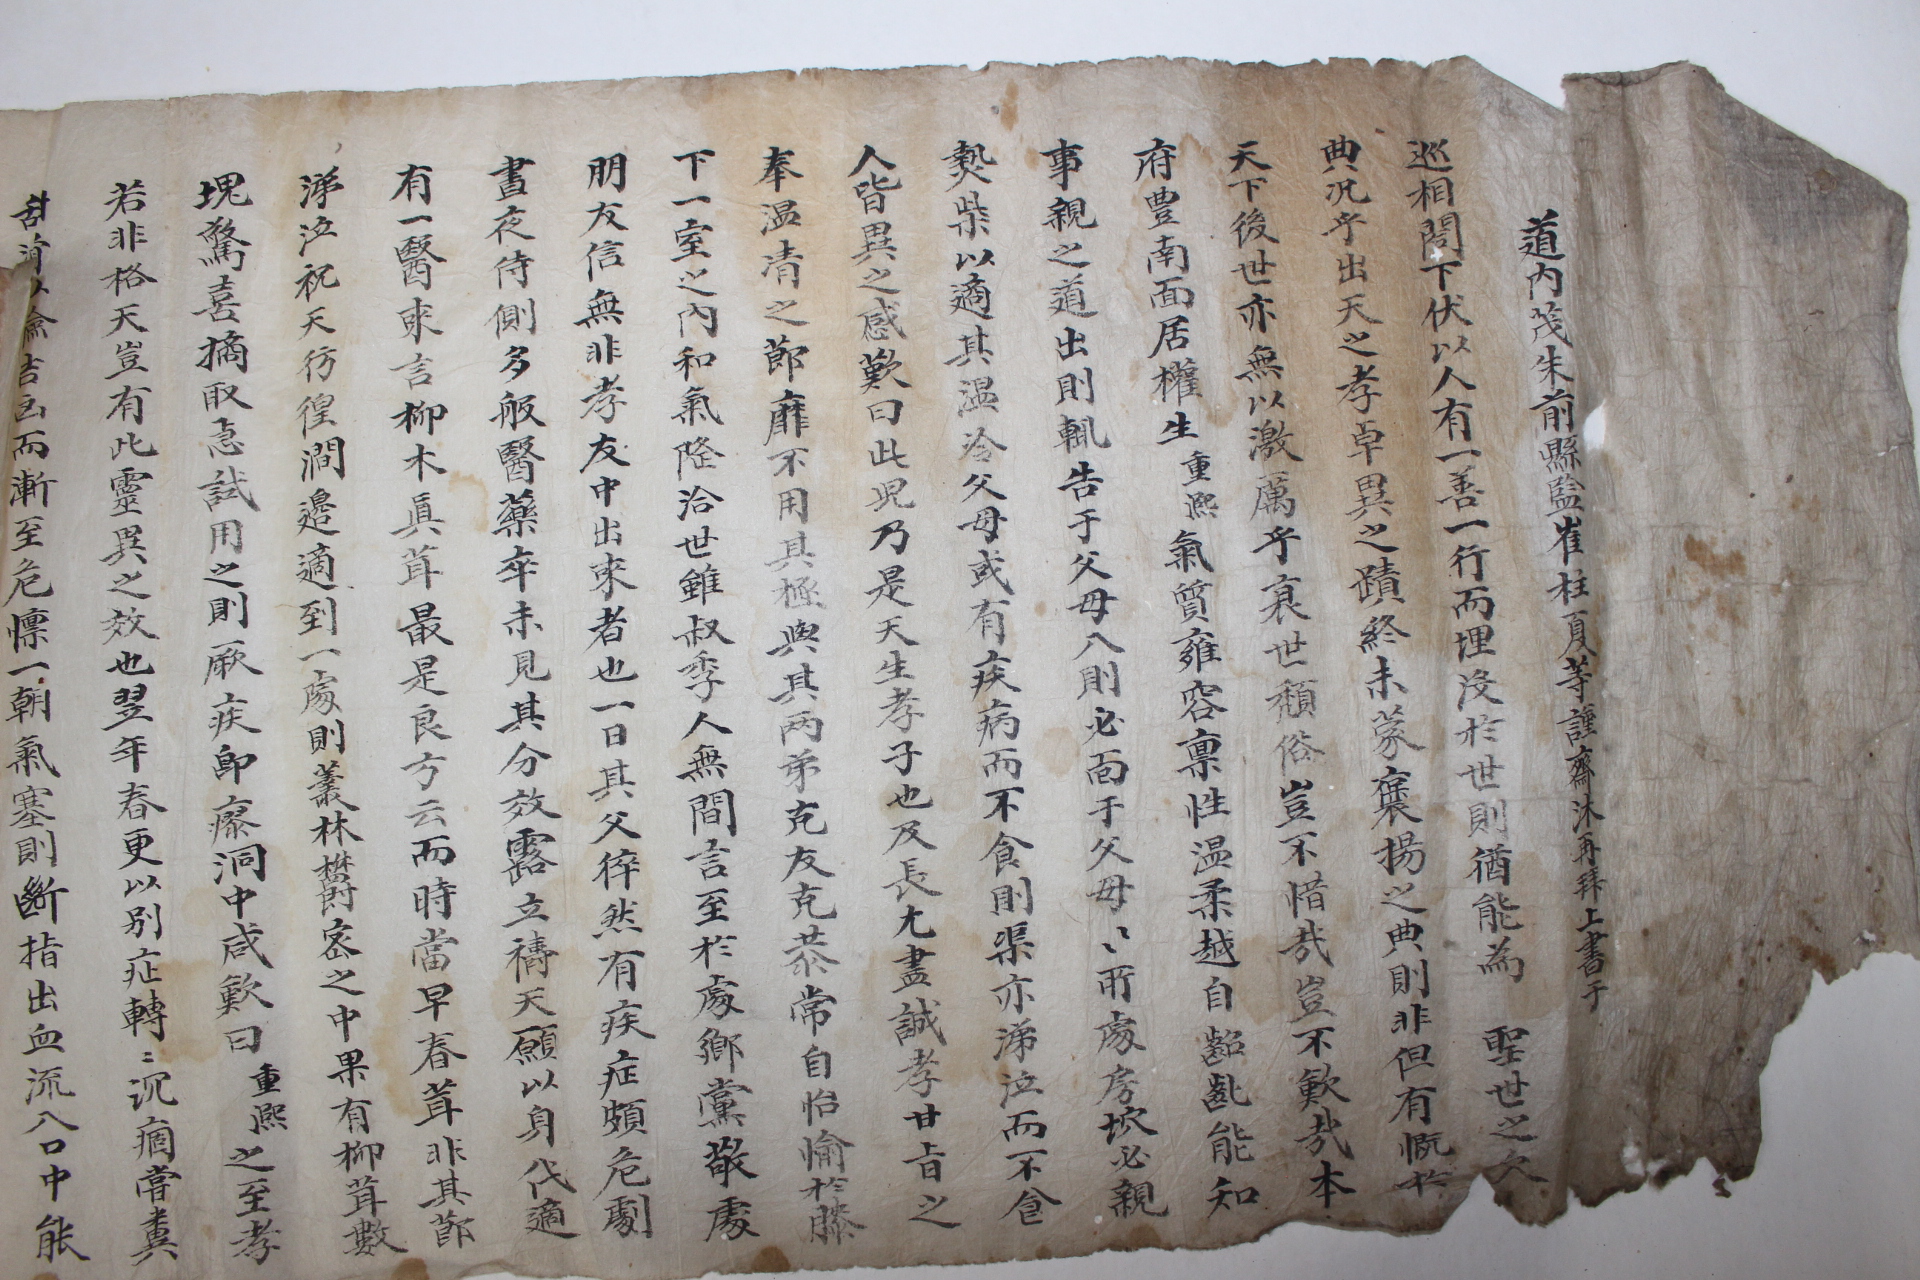 道內茂朱前縣監崔柱夏等謹齋沐再拜上書于
巡相閤下伏以人有一善一行而埋沒於世則猶能為 聖世之欠
典況乎出天之孝卓異之蹟終未蒙襃揚之典則非但有慨於
天下後世亦無以激厲乎衰世頹俗豈不惜哉豈不歎哉本
府豊南面居權生重熙氣質雍容禀性温柔越自齠齔能知
事親之道出則輒告于父母入則必面于父母〻所處房堗必親
爇柴以適其温冷父母或有疾病而不食則渠亦涕泣而不食
人皆異之感歎曰此児乃是天生孝子也及長尤盡誠孝甘旨之
奉温凊之節靡不用其極與其两弟克友克恭常自怡愉於膝
下一室之內和氣隆洽世雖叔季人無間言至於處鄉黨敬處
朋友信無非孝友中出來者也一日其父猝然有疾症頗危劇
晝夜侍側多般醫藥卒未見其分效露立禱天願以身代適
有一醫來言柳木眞茸最是良方云而時當早春茸非其節
涕泣祝天彷徨澗邊適到一處則叢林欝密之中果有柳茸數
塊驚喜摘取急試用之則厥疾卽瘳洞中咸歎曰重熙之至孝
若非格天豈有此靈異之效也翌年春更以别症轉〻沉痼嘗糞
甜 吉凶而漸至危懍一朝氣塞則斷指出血流入口中能